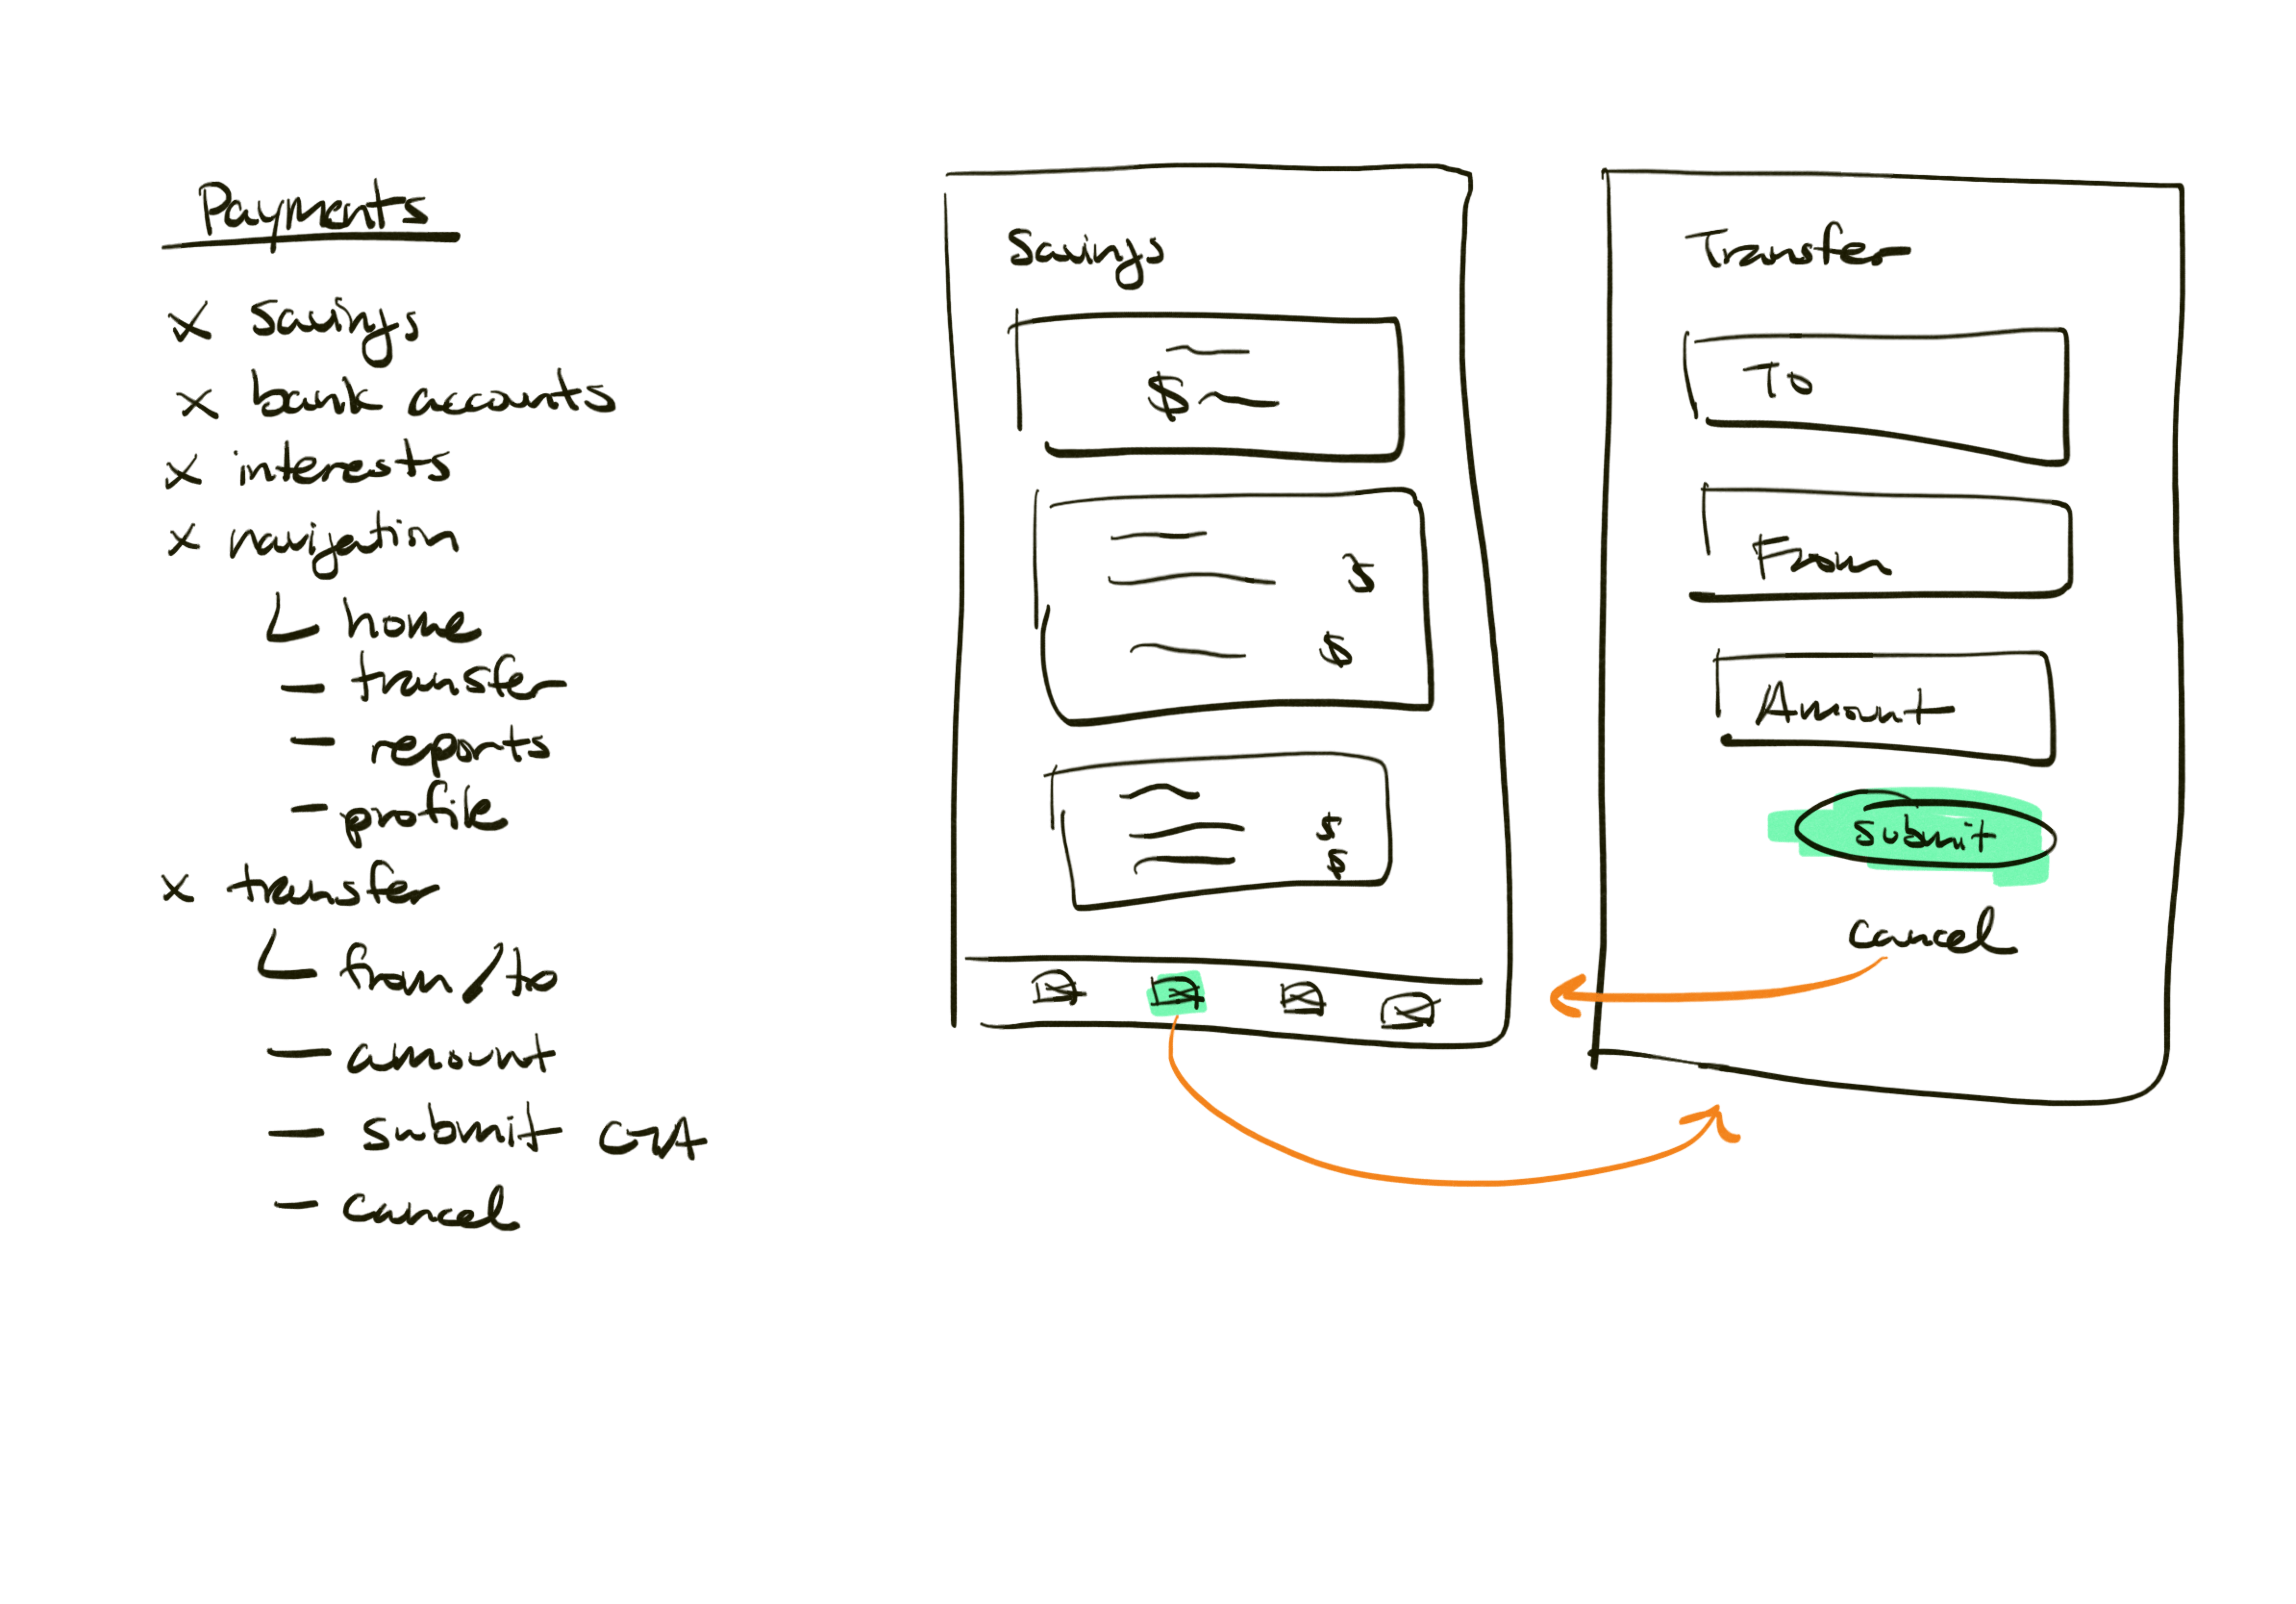 Payments
x savings
x bank accounts
x interests
x navigation
home
- transfer
- reports
- profile
x transfer
from/to
- amount
- submit CTA
- cancel
Savings
$
$
$
$
$
Transfer
To
From
Amount
submit
cancel